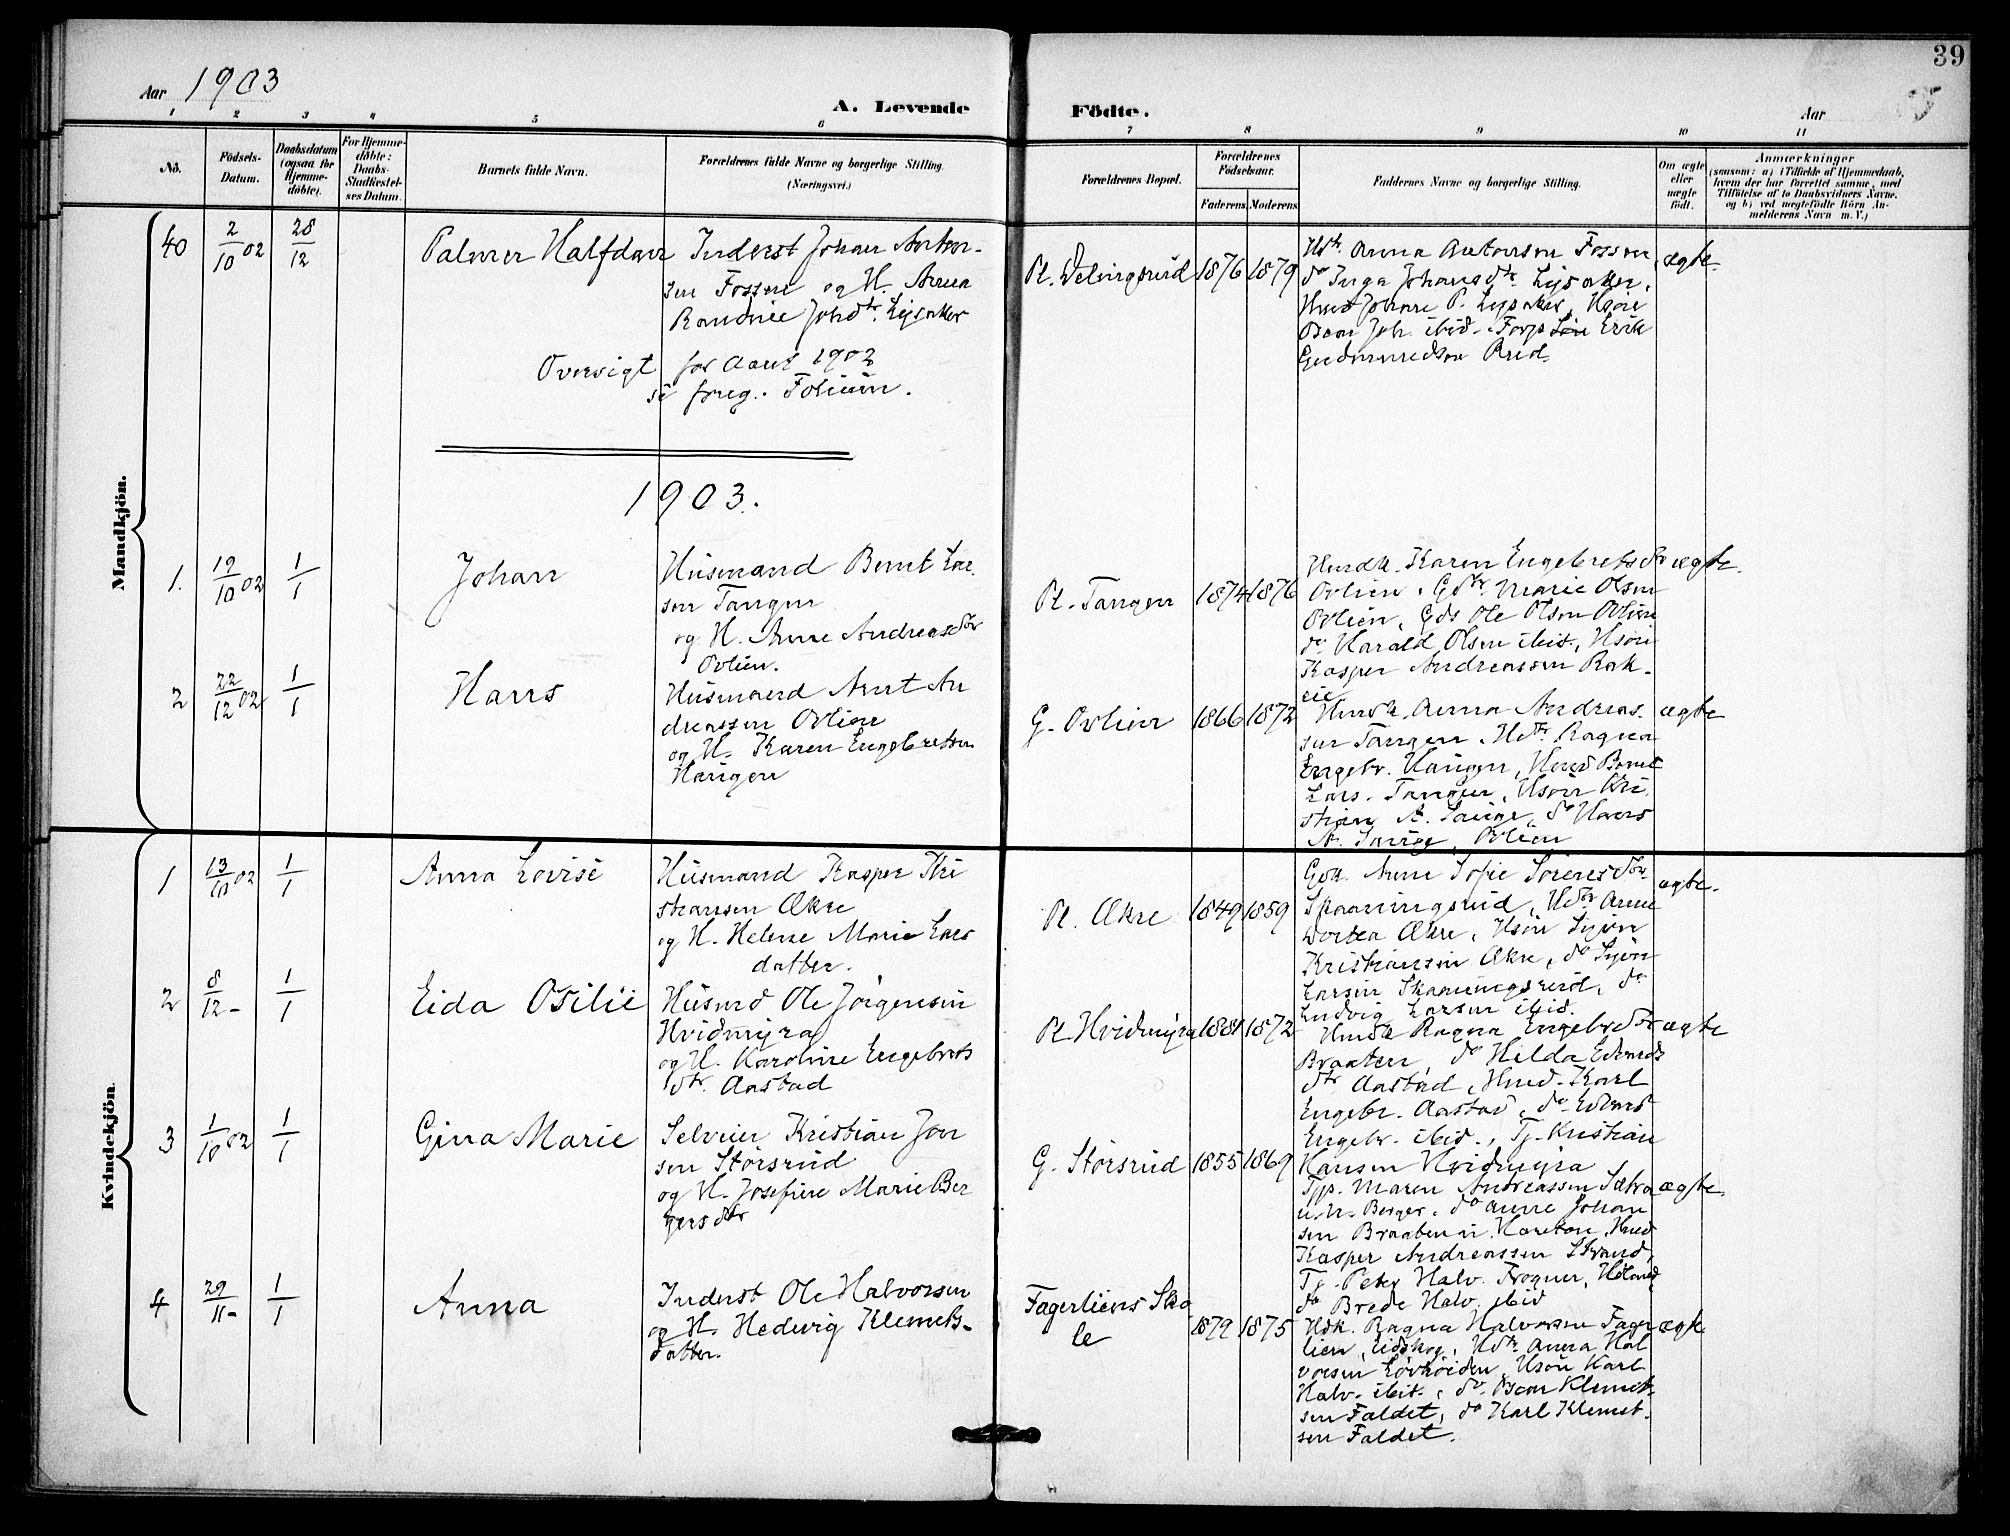 39
Aar 1903
A. Levende
Födte.
Aar
1 2 3 4 5 6 7 8 9 10 11
No.
Födsels-
Datum.
Daabsdatum
(ogsaa for
Hjemme-
döbte).
For Hjemme-
döbte:
Daabs-
Stadfæstel-
ses Datum.
Barnets fulde Navn.
Forældrenes fulde Navne og borgerlige Stilling.
(Næringsvei.)
Forældrenes Bopæl.
Forældrenes
Födselsaar.
Faderens Moderens
Faddernes Navne og borgerlige Stilling.
Om ægte
eller
uægte
födt.
Anmærkninger
(saasom: a) i Tilfælde af Hjemmedaab,
hvem der har forrettet samme, med
Tilföielse af to Daabsvidners Navne.
og b) ved uægtefödte Börn An-
melderens Navn m. V.)
Mandkjön.
40
2/10 02
28/12
Palmer Halfdan
Inderst Johan Anton-
sen Fossen og H. Anna
Randine Johdtr. Lysaker
Pl. 1876 1879
Hdtr. Anna Antonsen Fossen,
do Inga Johansdtr. Lysaker,
Hmd Johan P. Lysaker, Hsön
Oscar Joh. ibid. Erik
Gudmundsen
ægte.
Oversigt for Aaret 1902
se foreg. Folium.
1903.
1.
19/10 02
1/1
Johan
Husmand Bernt Lar-
sen Tangen
og H. Anne Andreasdtr
Ovlien.
Pl. Tangen 1874 1876
Hmdk. Karen Engebretsdtr
Ovlien, Gdtr. Marie Olsen
Ovlien, Gds Ole Olsen Ovlien
do. Harald Olsen ibid., Hsön
Kasper Andreassen Bak-
ægte.
2
22/12 02
1/1
Hans
Husmand Arnt An
dreassen Ovlien
og H. Karen Engebretsen
Haugen
G. Ovlien 1866 1872
Hmdk. Anna Andreas-
sen Tangen, Hdtr. Ragna
Engebr. Haugen, Hmd Bernt
Lars. Tangen, Hsön Kri
stian A. do Hans
A. Ovlien
ægte
Kvindekjön.
1
13/10 02
1/1
Anna Lovise
Husmand Kasper Kri
stiansen Økre
og H. Helene Marie Lars
datter.
Pl. Økre 1849 1859
Gdk. Anne Sofie Sörensdtr
Skaaningsrud, Hdtr Anne
Dortea Økre, Hsön
Kristiansen Økre, do
Larsen Skaaningsrud, do
Ludvig Larsen ibid.
ægte.
2
8/12 -
1/1
Eida Otilie
Husmd Ole Jörgensen
Hvidmyra
og H. Karoline Engebrets
dtr. Aastad
Pl. Hvidmyra 1881 1872
Hmdk Ragna Engebrdtr
Braaten, do Hilda Edvards
dtr Aastad, Hmd. Karl
Engebr. Aastad, do Edvard
Engebr. ibid., Tj. Kristian
Hansen Hvidmyra
ægte
3
1/10 02
1/1
Gina Marie
Selveier Kristian Jon
sen Störsrud
og H. Josefine Marie Ber
gersdtr
G. Störsrud 1855 1869
Tjp. Maren Andreassen
Berger, do Anne Johan
sen Hmd
Kasper Andreassen Strand,
Tj. Peter Halv. Frogner,
do Brede Halv. ibid
ægte.
4
29/11 -
1/1
Anna
Inderst Ole Halvorsen
og H. Hedvig Klemets-
datter.
Fagerliens Sko
le
1879 1875
Hdk. Ragna Halvorsen Fager
lien, Eidskog, Hdtr. Anna Hal
vorsen Hsön Karl
Halv. ibid., do. Oscar Klemet-
sen Faldet, do Karl Klemet-
sen Faldet.
ægte